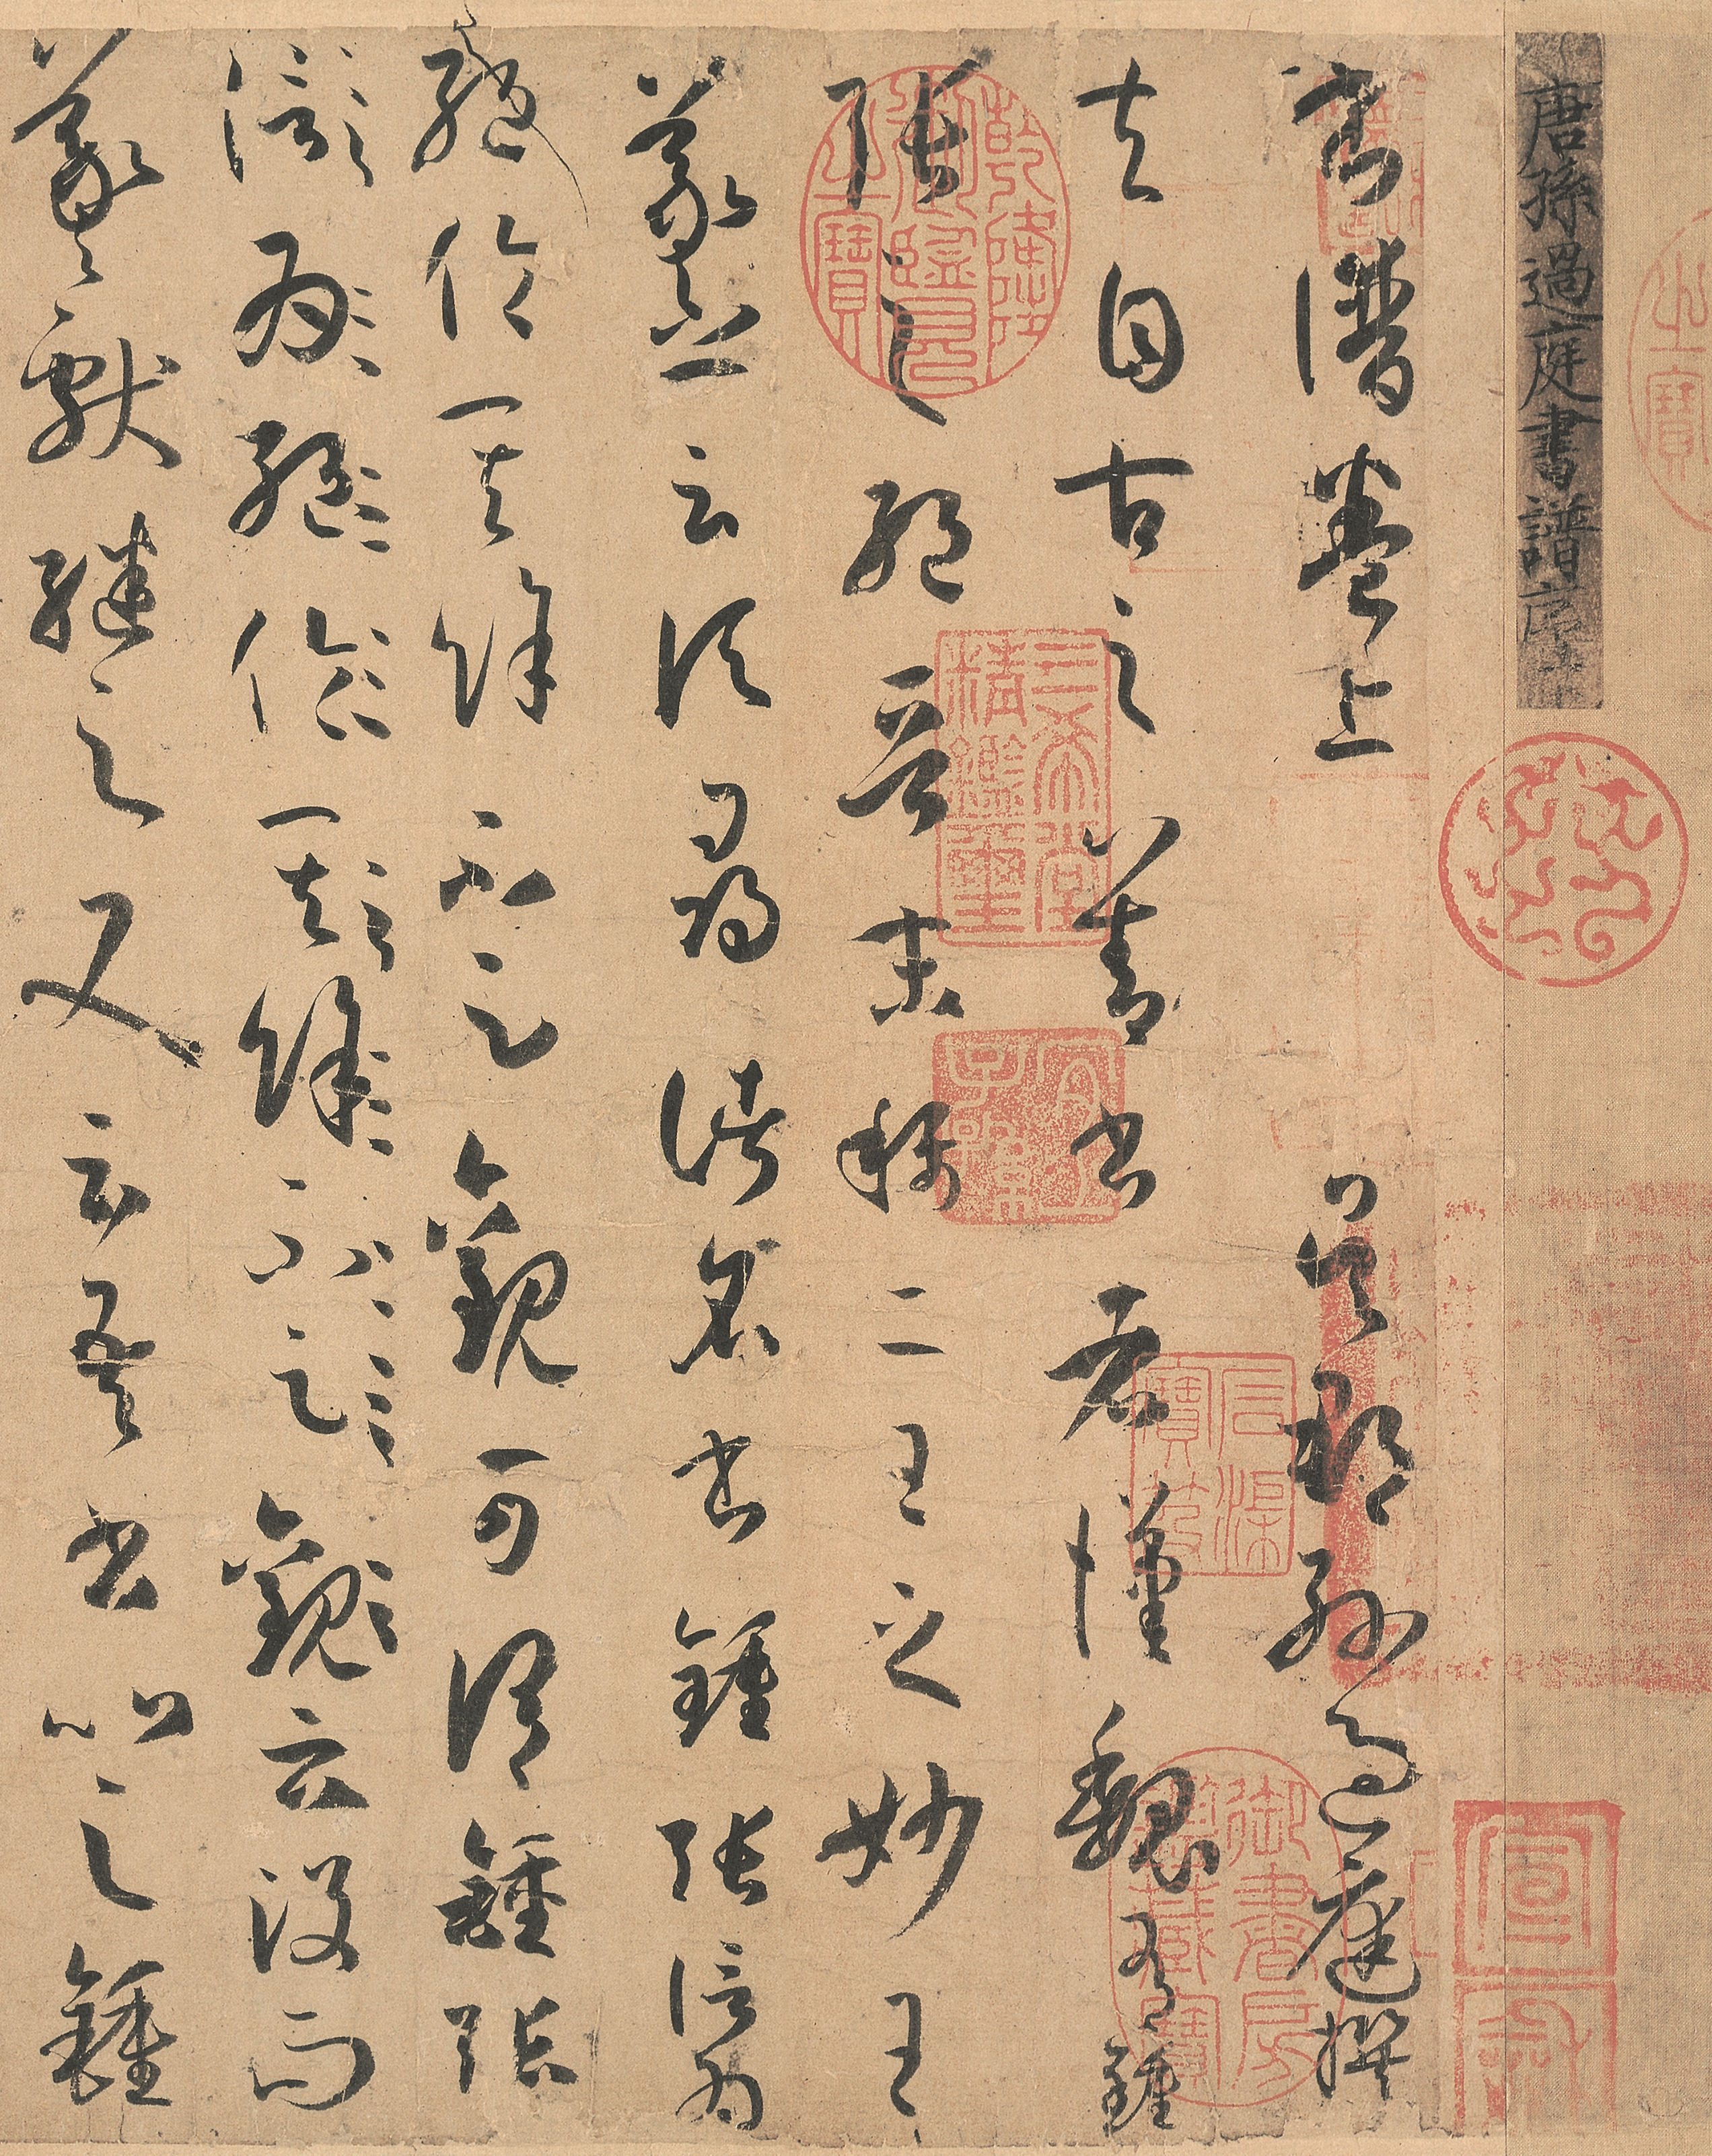 唐孫過庭書譜序
書譜卷上 吳郡孫過庭撰
夫自古之善書者漢魏有鍾
張之絕晉末稱二王之妙王
羲之云頃尋諸名書鍾張信為
絕倫其餘不足觀可謂鍾張
信為絕倫其餘不足觀云沒而
羲獻繼之又云吾書比之鍾
乾隆御覽之寶
三希堂精鑑璽
宜子孫
石渠寶笈
御書房鑑藏寶
宣和
之寶